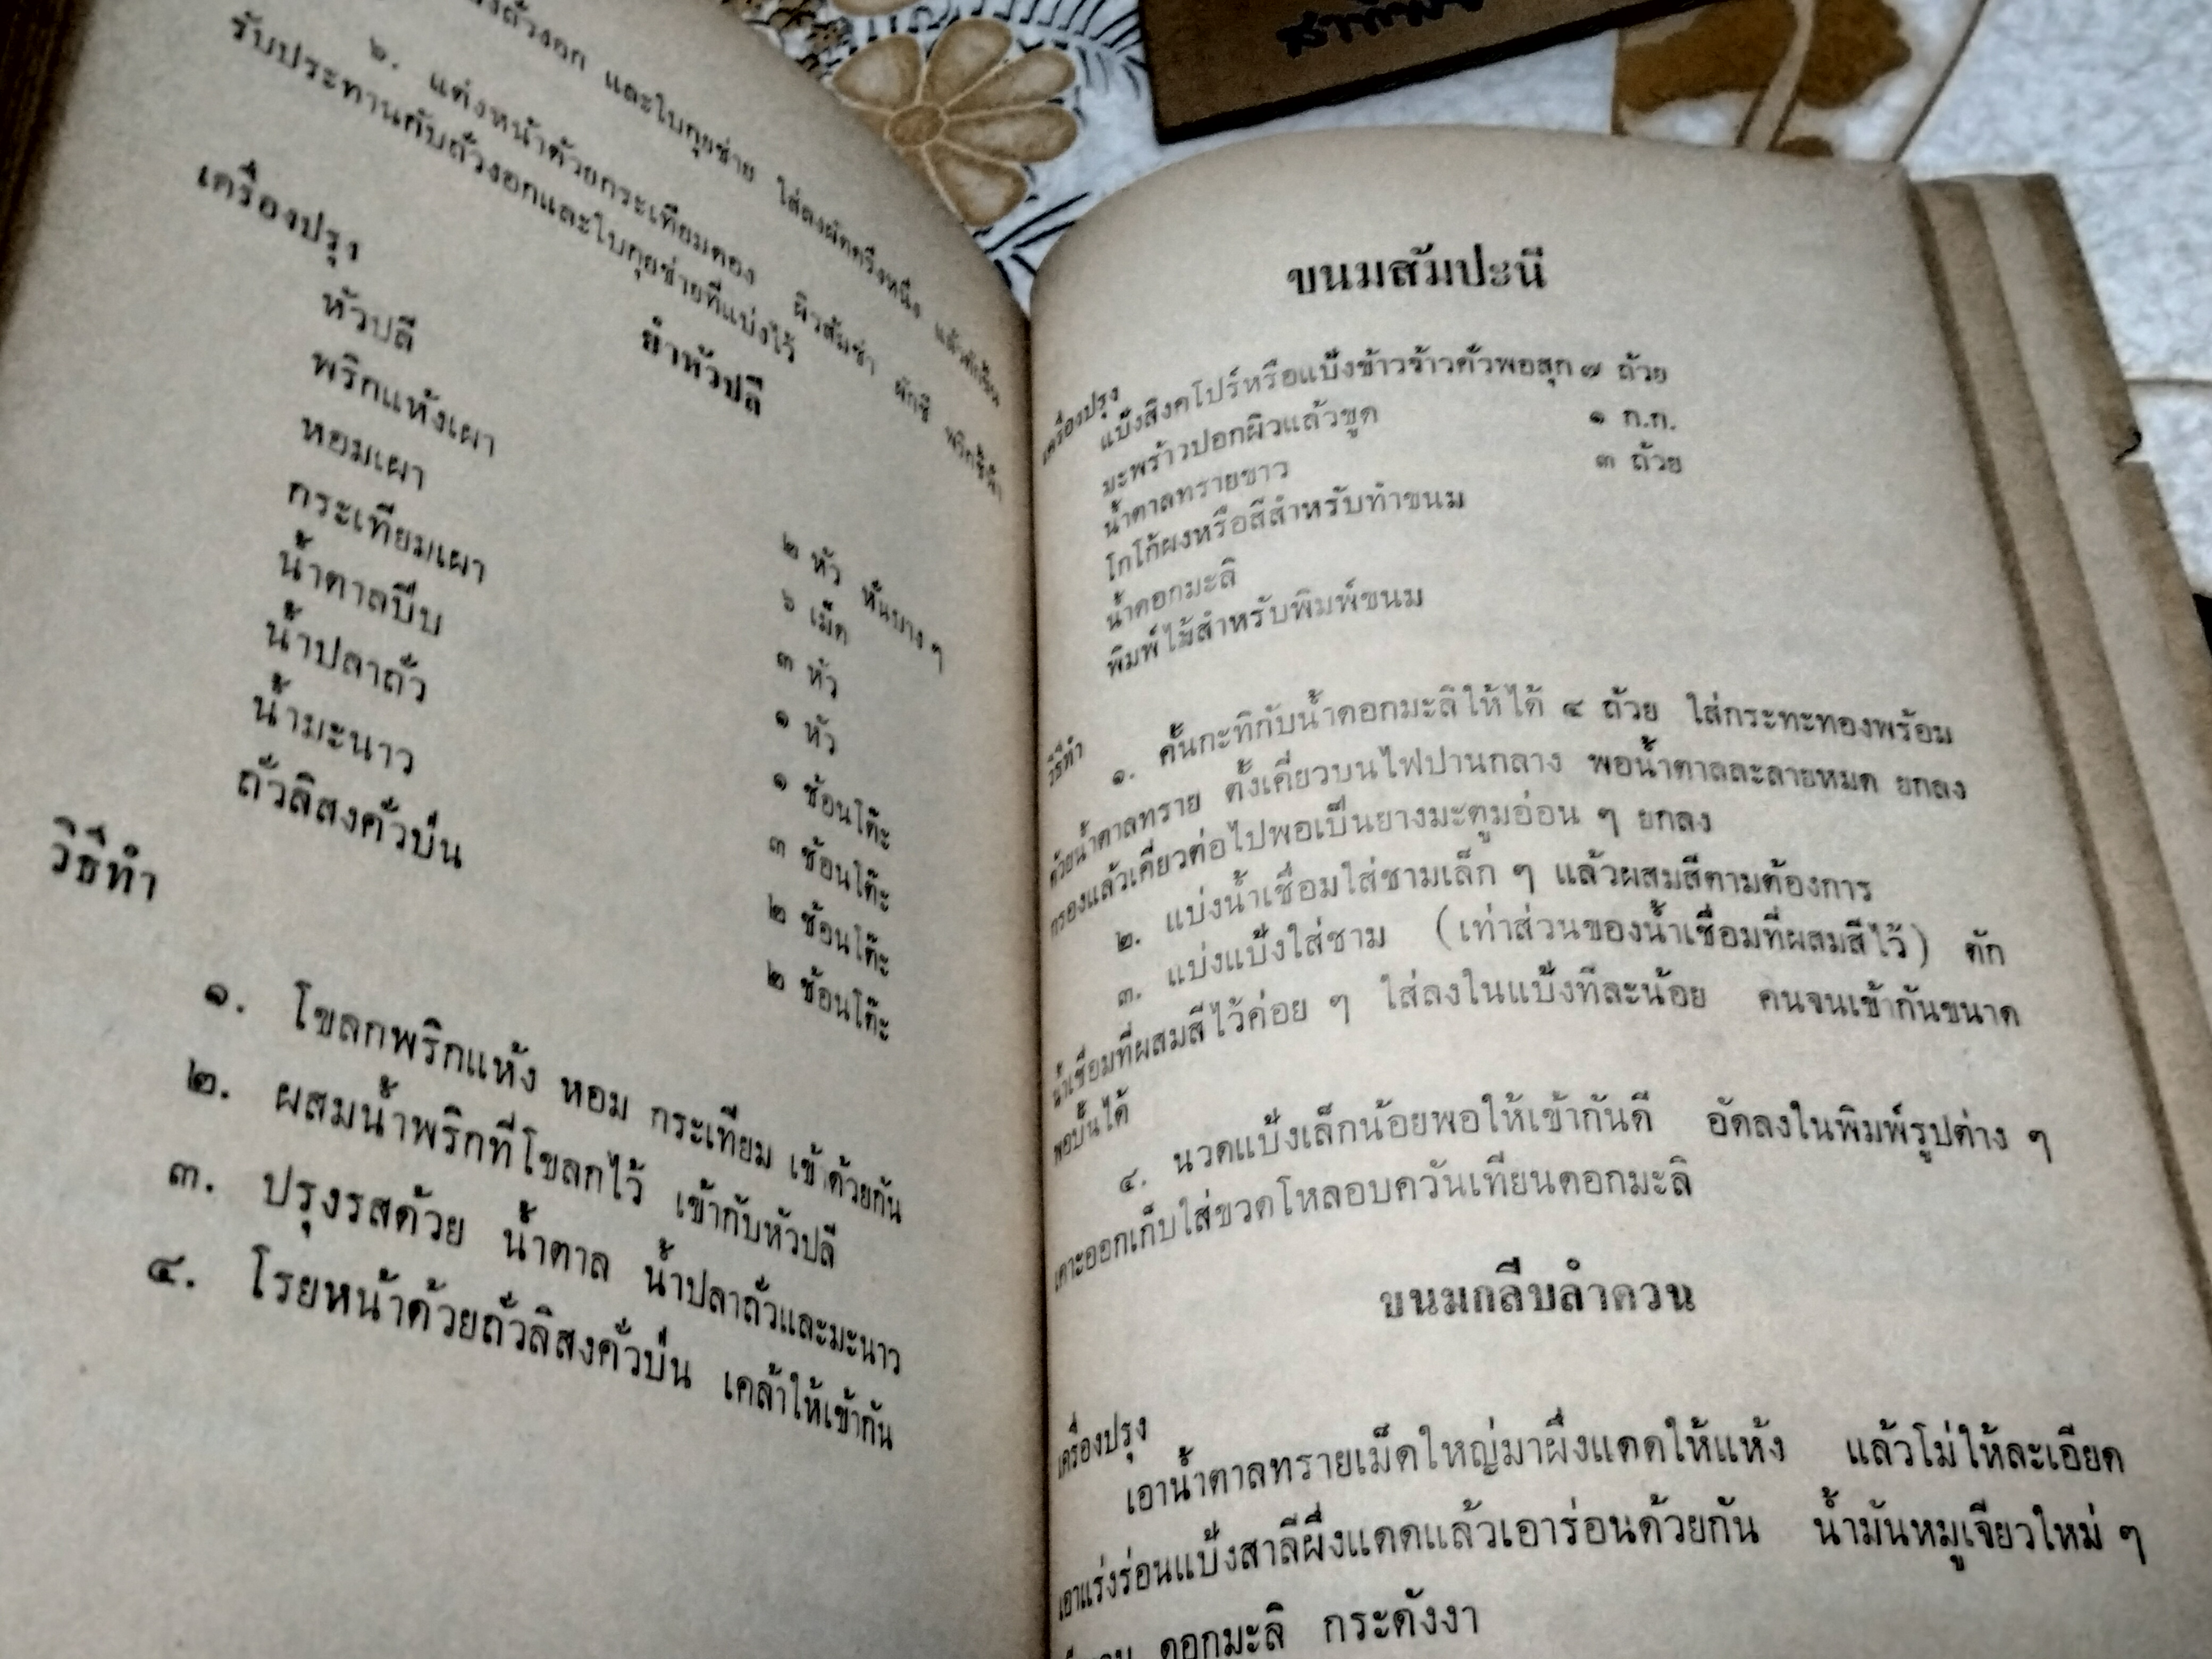 และใบกุยช่าย ใส่ลงผัดครึ่งหนึ่ง
๒. แต่งหน้าด้วยกระเทียมดอง ผิวส้มซ่า ผักชี พริกชี้ฟ้า
รับประทานกับถั่วงอกและใบกุยช่ายที่แบ่งไว้
ยำหัวปลี
เครื่องปรุง
หัวปลี ๒ หัว หั่นบาง ๆ
พริกแห้งเผา ๖ เม็ด
หอมเผา ๓ หัว
กระเทียมเผา ๑ หัว
น้ำตาลปีบ ๑ ช้อนโต๊ะ
น้ำปลาถั่ว ๓ ช้อนโต๊ะ
น้ำมะนาว ๒ ช้อนโต๊ะ
ถั่วลิสงคั่วป่น ๒ ช้อนโต๊ะ
วิธีทำ
๑. โขลกพริกแห้ง หอม กระเทียม เข้าด้วยกัน
๒. ผสมน้ำพริกที่โขลกไว้ เข้ากับหัวปลี
๓. ปรุงรสด้วย น้ำตาล น้ำปลาถั่วและมะนาว
๔. โรยหน้าด้วยถั่วลิสงคั่วป่น เคล้าให้เข้ากัน
ขนมสัมปะนี
เครื่องปรุง
แป้งสิงคโปร์หรือแป้งข้าวจ้าวคั่วพอสุก ๗ ถ้วย
มะพร้าวปอกผิวแล้วขูด ๑ ก.ก.
น้ำตาลทรายขาว ๓ ถ้วย
โกโก้ผงหรือสีสำหรับทำขนม
น้ำดอกมะลิ
พิมพ์ไม้สำหรับพิมพ์ขนม
วิธีทำ
๑. คั้นกะทิกับน้ำดอกมะลิให้ได้ ๔ ถ้วย ใส่กระทะทองพร้อม
ด้วยน้ำตาลทราย ตั้งเคี่ยวบนไฟปานกลาง พอน้ำตาลละลายหมด ยกลง
กรองแล้วเคี่ยวต่อไปพอเป็นยางมะตูมอ่อน ๆ ยกลง
๒. แบ่งน้ำเชื่อมใส่ชามเล็ก ๆ แล้วผสมสีตามต้องการ
๓. แบ่งแป้งใส่ชาม (เท่าส่วนของน้ำเชื่อมที่ผสมสีไว้) ตัก
น้ำเชื่อมที่ผสมสีไว้ค่อย ๆ ใส่ลงในแป้งทีละน้อย คนจนเข้ากันขนาด
พอปั้นได้
๔. นวดแป้งเล็กน้อยพอให้เข้ากันดี อัดลงในพิมพ์รูปต่าง ๆ
เคาะออกเก็บใส่ขวดโหลอบควันเทียนดอกมะลิ
ขนมกลีบลำดวน
เครื่องปรุง
เอาน้ำตาลทรายเม็ดใหญ่มาผึ่งแดดให้แห้ง แล้วโม่ให้ละเอียด
เอาแร่งร่อนแป้งสาลีผึ่งแดดแล้วเอาร่อนด้วยกัน น้ำมันหมูเจียวใหม่ ๆ
ดอกมะลิ กระดังงา